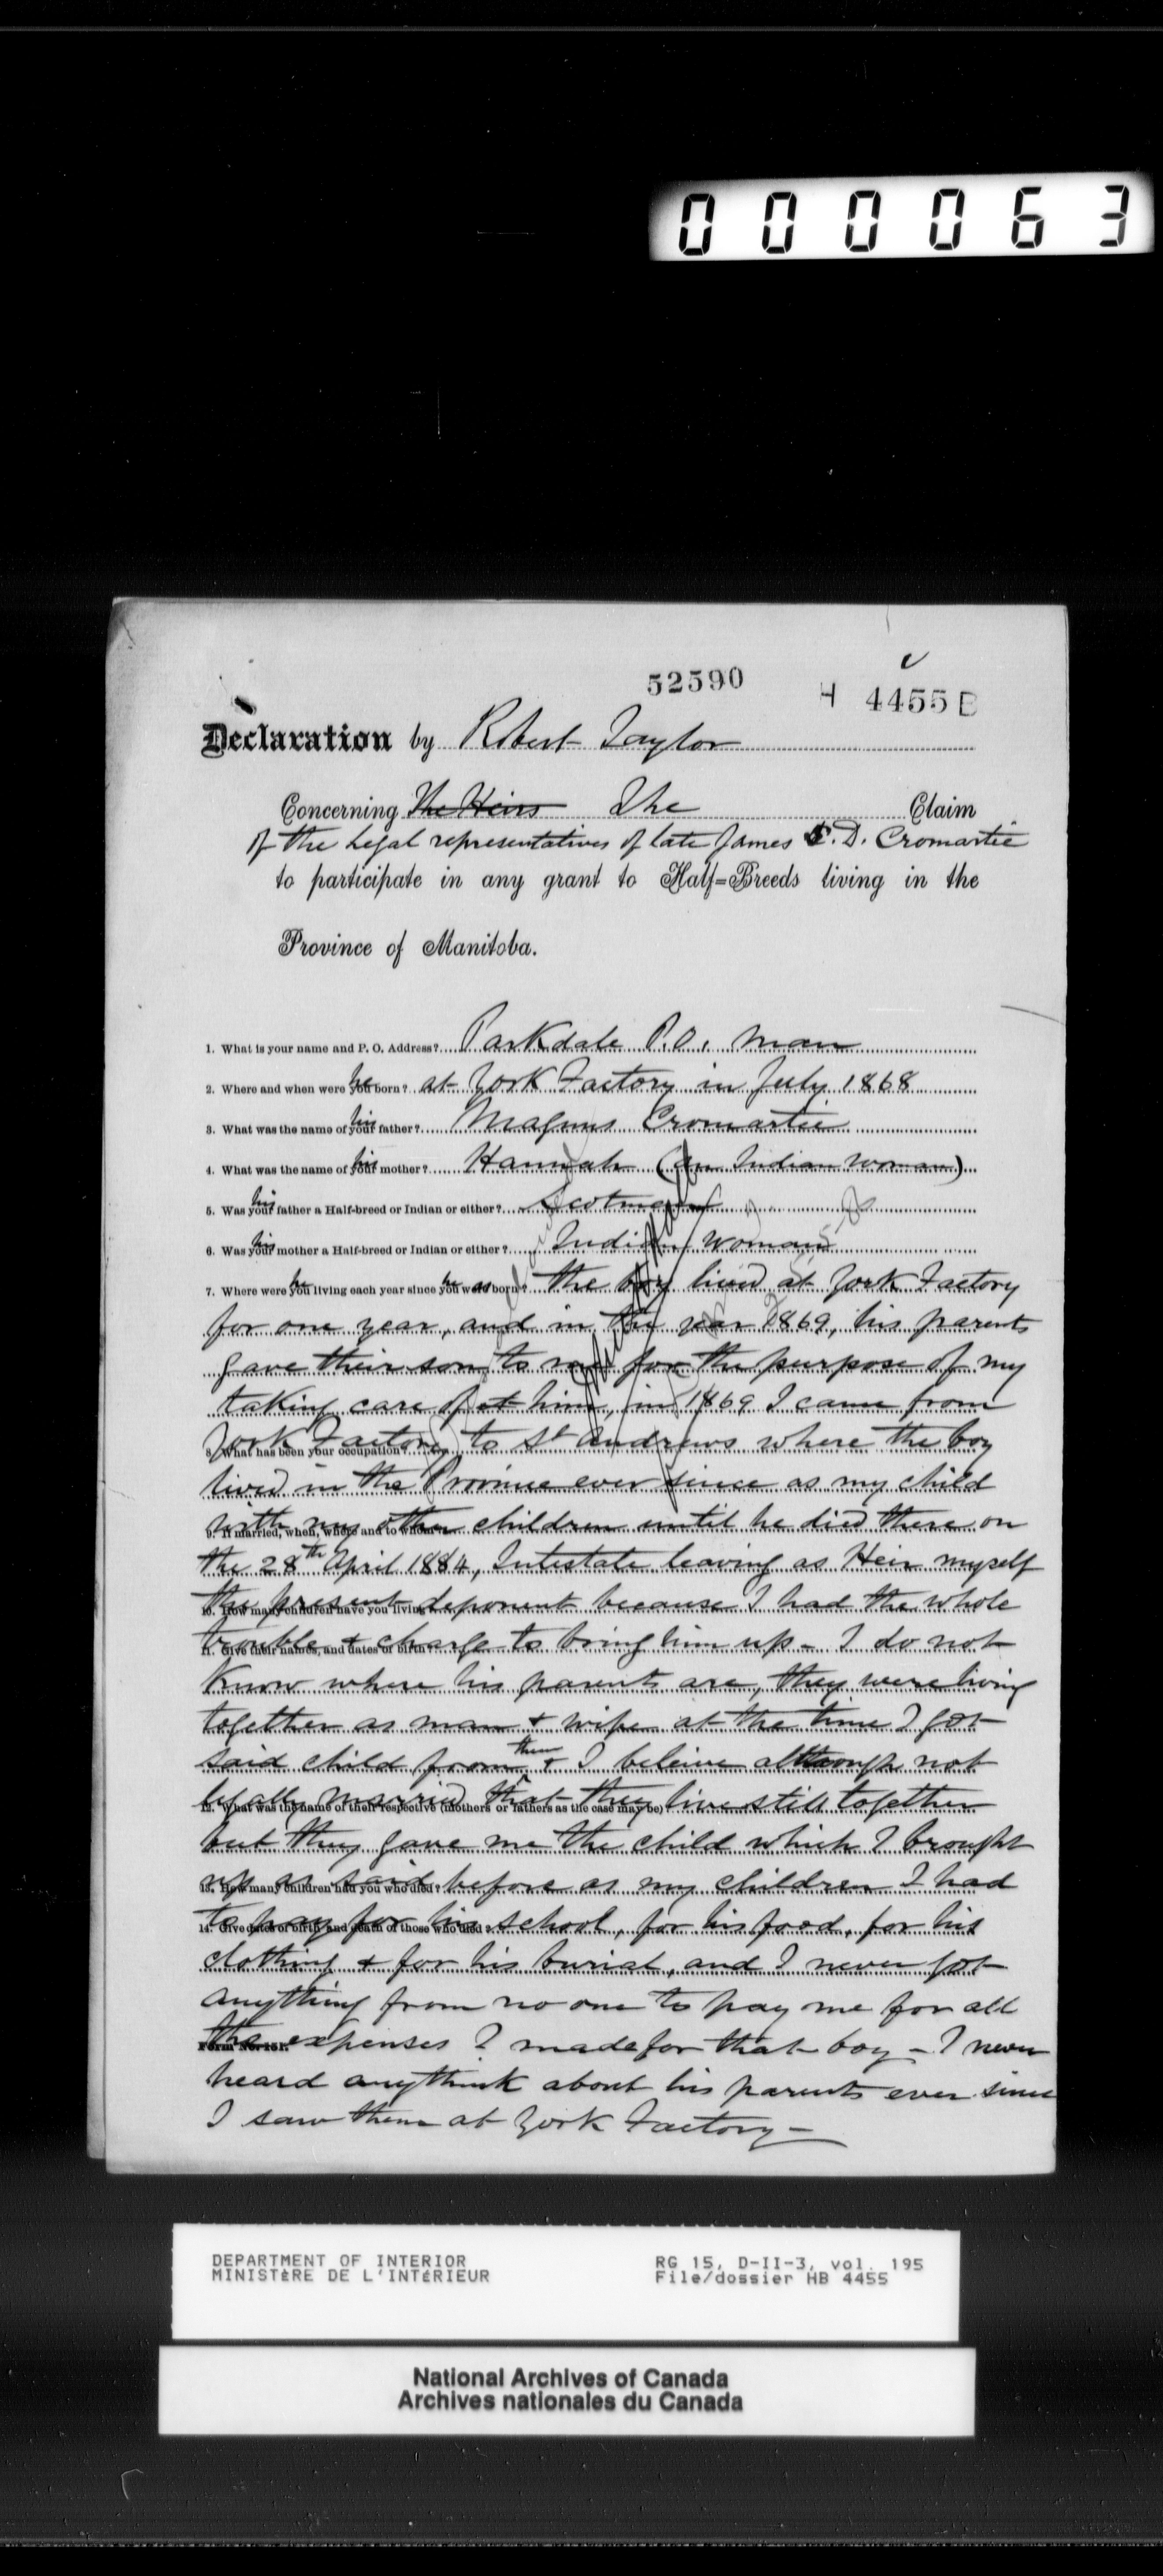 000063
52590
H 4455 B
Declaration by Robert Taylor
Concerning The Heirs The Claim
of the Legal representatives of late James C. D. Cromartie
to participate in any grant to Half=Breeds living in the
Province of Manitoba.
1. What is your name and P. O. Address? Parkdale P.O. Man
2. Where and when were you he born? at York Factory in July 1868
3. What was the name of your his father? Magnus Cromartie
4. What was the name of your his mother? Hannah (an Indian Woman)
5. Was your his father a Half-breed or Indian or either? Scotman
6. Was your his mother a Half-breed or Indian or either? Indian Woman
7. Where were you he living each year since you he were as born? the boy lived at York Factory
for one year, and in the year 1869, his parents
gave their son to me for the purpose of my
taking care of at him, in 1869 I came from
8. What has been your occupation? York Factory to St Andrews where the boy
lived in the Province ever since as my child
9. If married, when, where and to whom? with my other children until he died there on
the 28th April 1884, Intestate leaving as Heir myself
10. How many children have you living? the present deponent because I had the whole
11. Give their names, and dates of birth? trouble & charge to bring him up - I do not
Know where his parents are, they were living
together as man & wife at the time I got
said child from them & I beleive although not
12. What was the name of their respective (mothers or fathers as the case may be)? legally married that they live still together
but they gave me the child which I brought
13. How many children had you who died? up as said before as my children I had
14. Give dates of birth and death of those who died? to pay for his school, for his food, for his
clothing & for his burial, and I never got
anything from no one to pay me for all
Form No. 151. the expenses I made for that boy - I never
heard anythink about his parents ever since
I saw them at York Factory -
DEPARTMENT OF INTERIOR
MINISTÈRE DE L'INTÉRIEUR
RG 15, D-II-3, vol. 195
File/dossier HB 4455
National Archives of Canada
Archives nationales du Canada